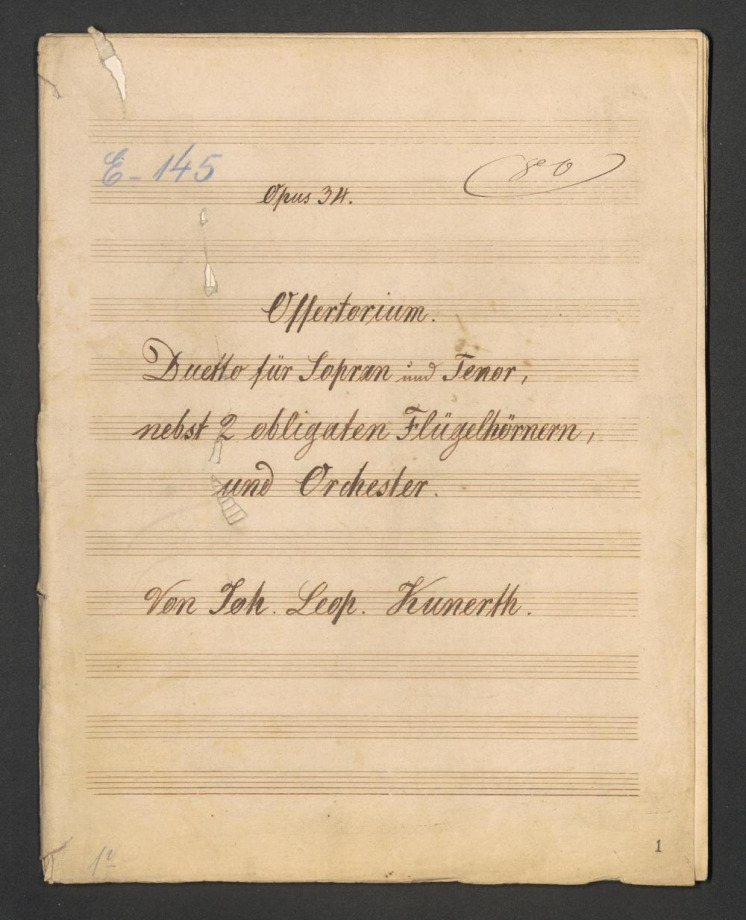 E-145
80
Opus 34.
Offertorium.
Duetto für Sopran und Tenor,
nebst 2 obligaten Flügelhörnern,
und Orchester.
Von Joh. Leop. Kunerth.
1